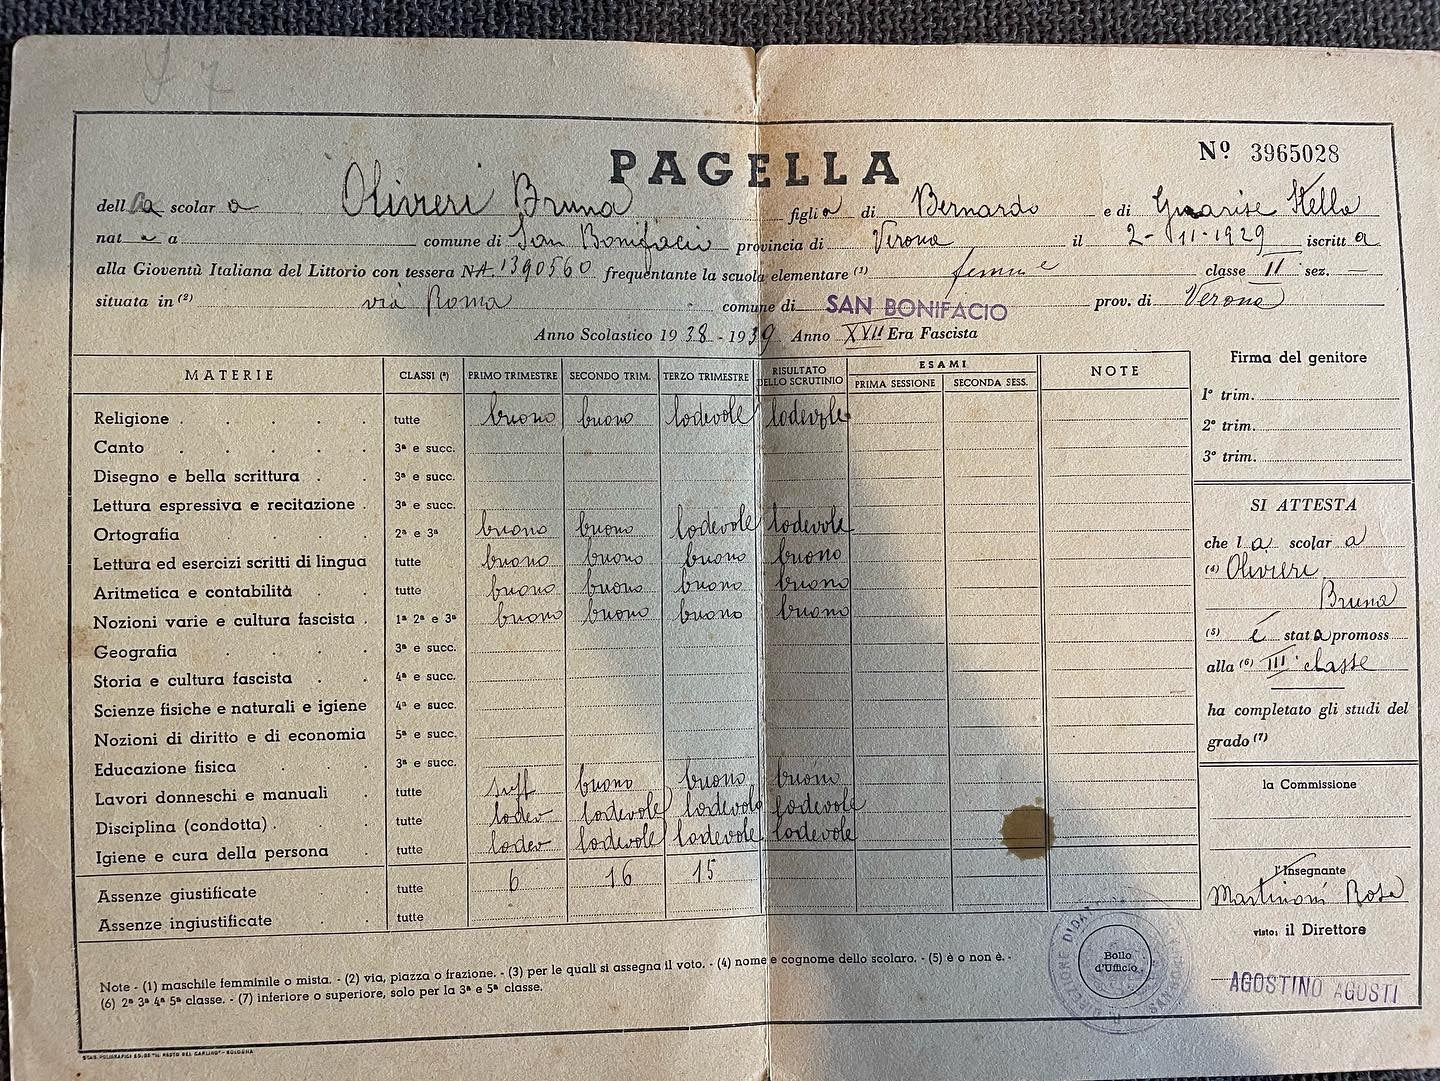 PAGELLA
Nº 3965028
della scolara Olivieri Bruna figlia di Bernardo e di Guarise Stella
nata a comune di San Bonifacio provincia di Verona il 2-11-1929 iscritta
alla Gioventù Italiana del Littorio con tessera N. 1390560 frequentante la scuola elementare (1) femm e classe II sez. —
situata in (2) via Roma comune di SAN BONIFACIO prov. di Verona
Anno Scolastico 1938-1939 Anno XVII Era Fascista
MATERIE CLASSI (³) PRIMO TRIMESTRE SECONDO TRIM. TERZO TRIMESTRE RISULTATO DELLO SCRUTINIO ESAMI PRIMA SESSIONE SECONDA SESS. NOTE
Religione tutte buono buono lodevole lodevole
Canto 3ª e succ.
Disegno e bella scrittura 3ª e succ.
Lettura espressiva e recitazione 3ª e succ.
Ortografia 2ª e 3ª buono buono lodevole lodevole
Lettura ed esercizi scritti di lingua tutte buono buono buono buono
Aritmetica e contabilità tutte buono buono buono buono
Nozioni varie e cultura fascista 1ª 2ª e 3ª buono buono buono buono
Geografia 3ª e succ.
Storia e cultura fascista 4ª e succ.
Scienze fisiche e naturali e igiene 4ª e succ.
Nozioni di diritto e di economia 5ª e succ.
Educazione fisica 3ª e succ.
Lavori donneschi e manuali tutte suff buono buono buono
Disciplina (condotta) tutte lodev lodevole lodevole lodevole
Igiene e cura della persona tutte lodev lodevole lodevole lodevole
Assenze giustificate tutte 6 16 15
Assenze ingiustificate tutte
Note - (1) maschile femminile o mista. - (2) via, piazza o frazione. - (3) per le quali si assegna il voto. - (4) nome e cognome dello scolaro. - (5) è o non è. -
(6) 2ª 3ª 4ª 5ª classe. - (7) inferiore o superiore, solo per la 3ª e 5ª classe.
STAB. POLIGRAFICI ED. DE "IL RESTO DEL CARLINO" - BOLOGNA
Firma del genitore
1º trim.
2º trim.
3º trim.
SI ATTESTA
che la scolara
(4) Olivieri
Bruna
(5) è stata promoss
alla (6) III classe
ha completato gli studi del
grado (7)
la Commissione
l'Insegnante
Martinoni Rosa
visto: il Direttore
AGOSTINO AGUSTI
Bollo
d'Ufficio